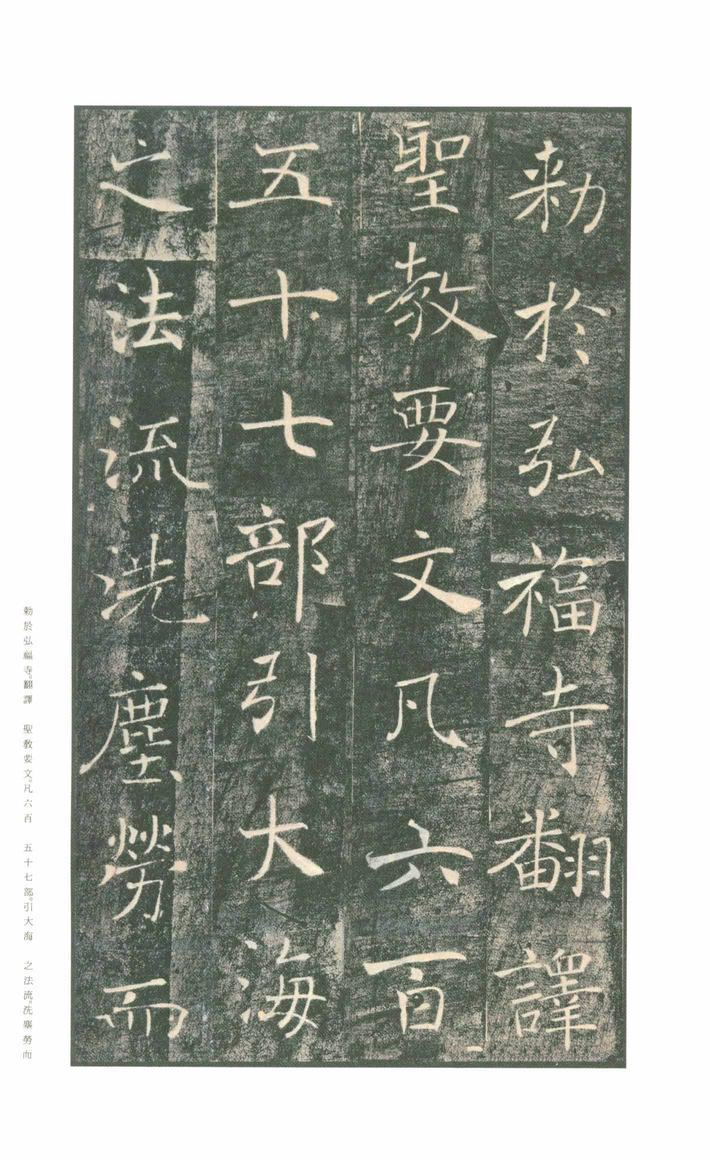 勅於弘福寺翻譯
聖教要文凡六百
五十七部引大海
之法流洗塵勞而
勅於弘福寺。翻譯　聖教要文。凡六百　五十七部。引大海　之法流。洗塵勞而